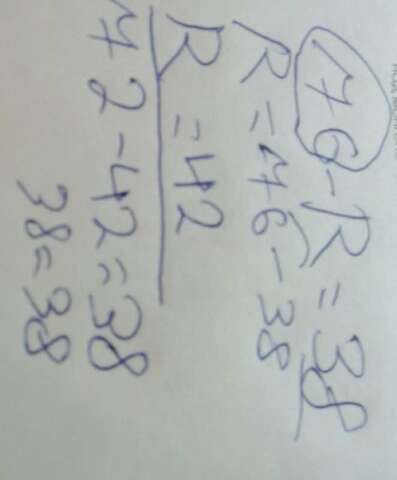 76-R=38
R=76-38
R=42
72-42=38
38=38